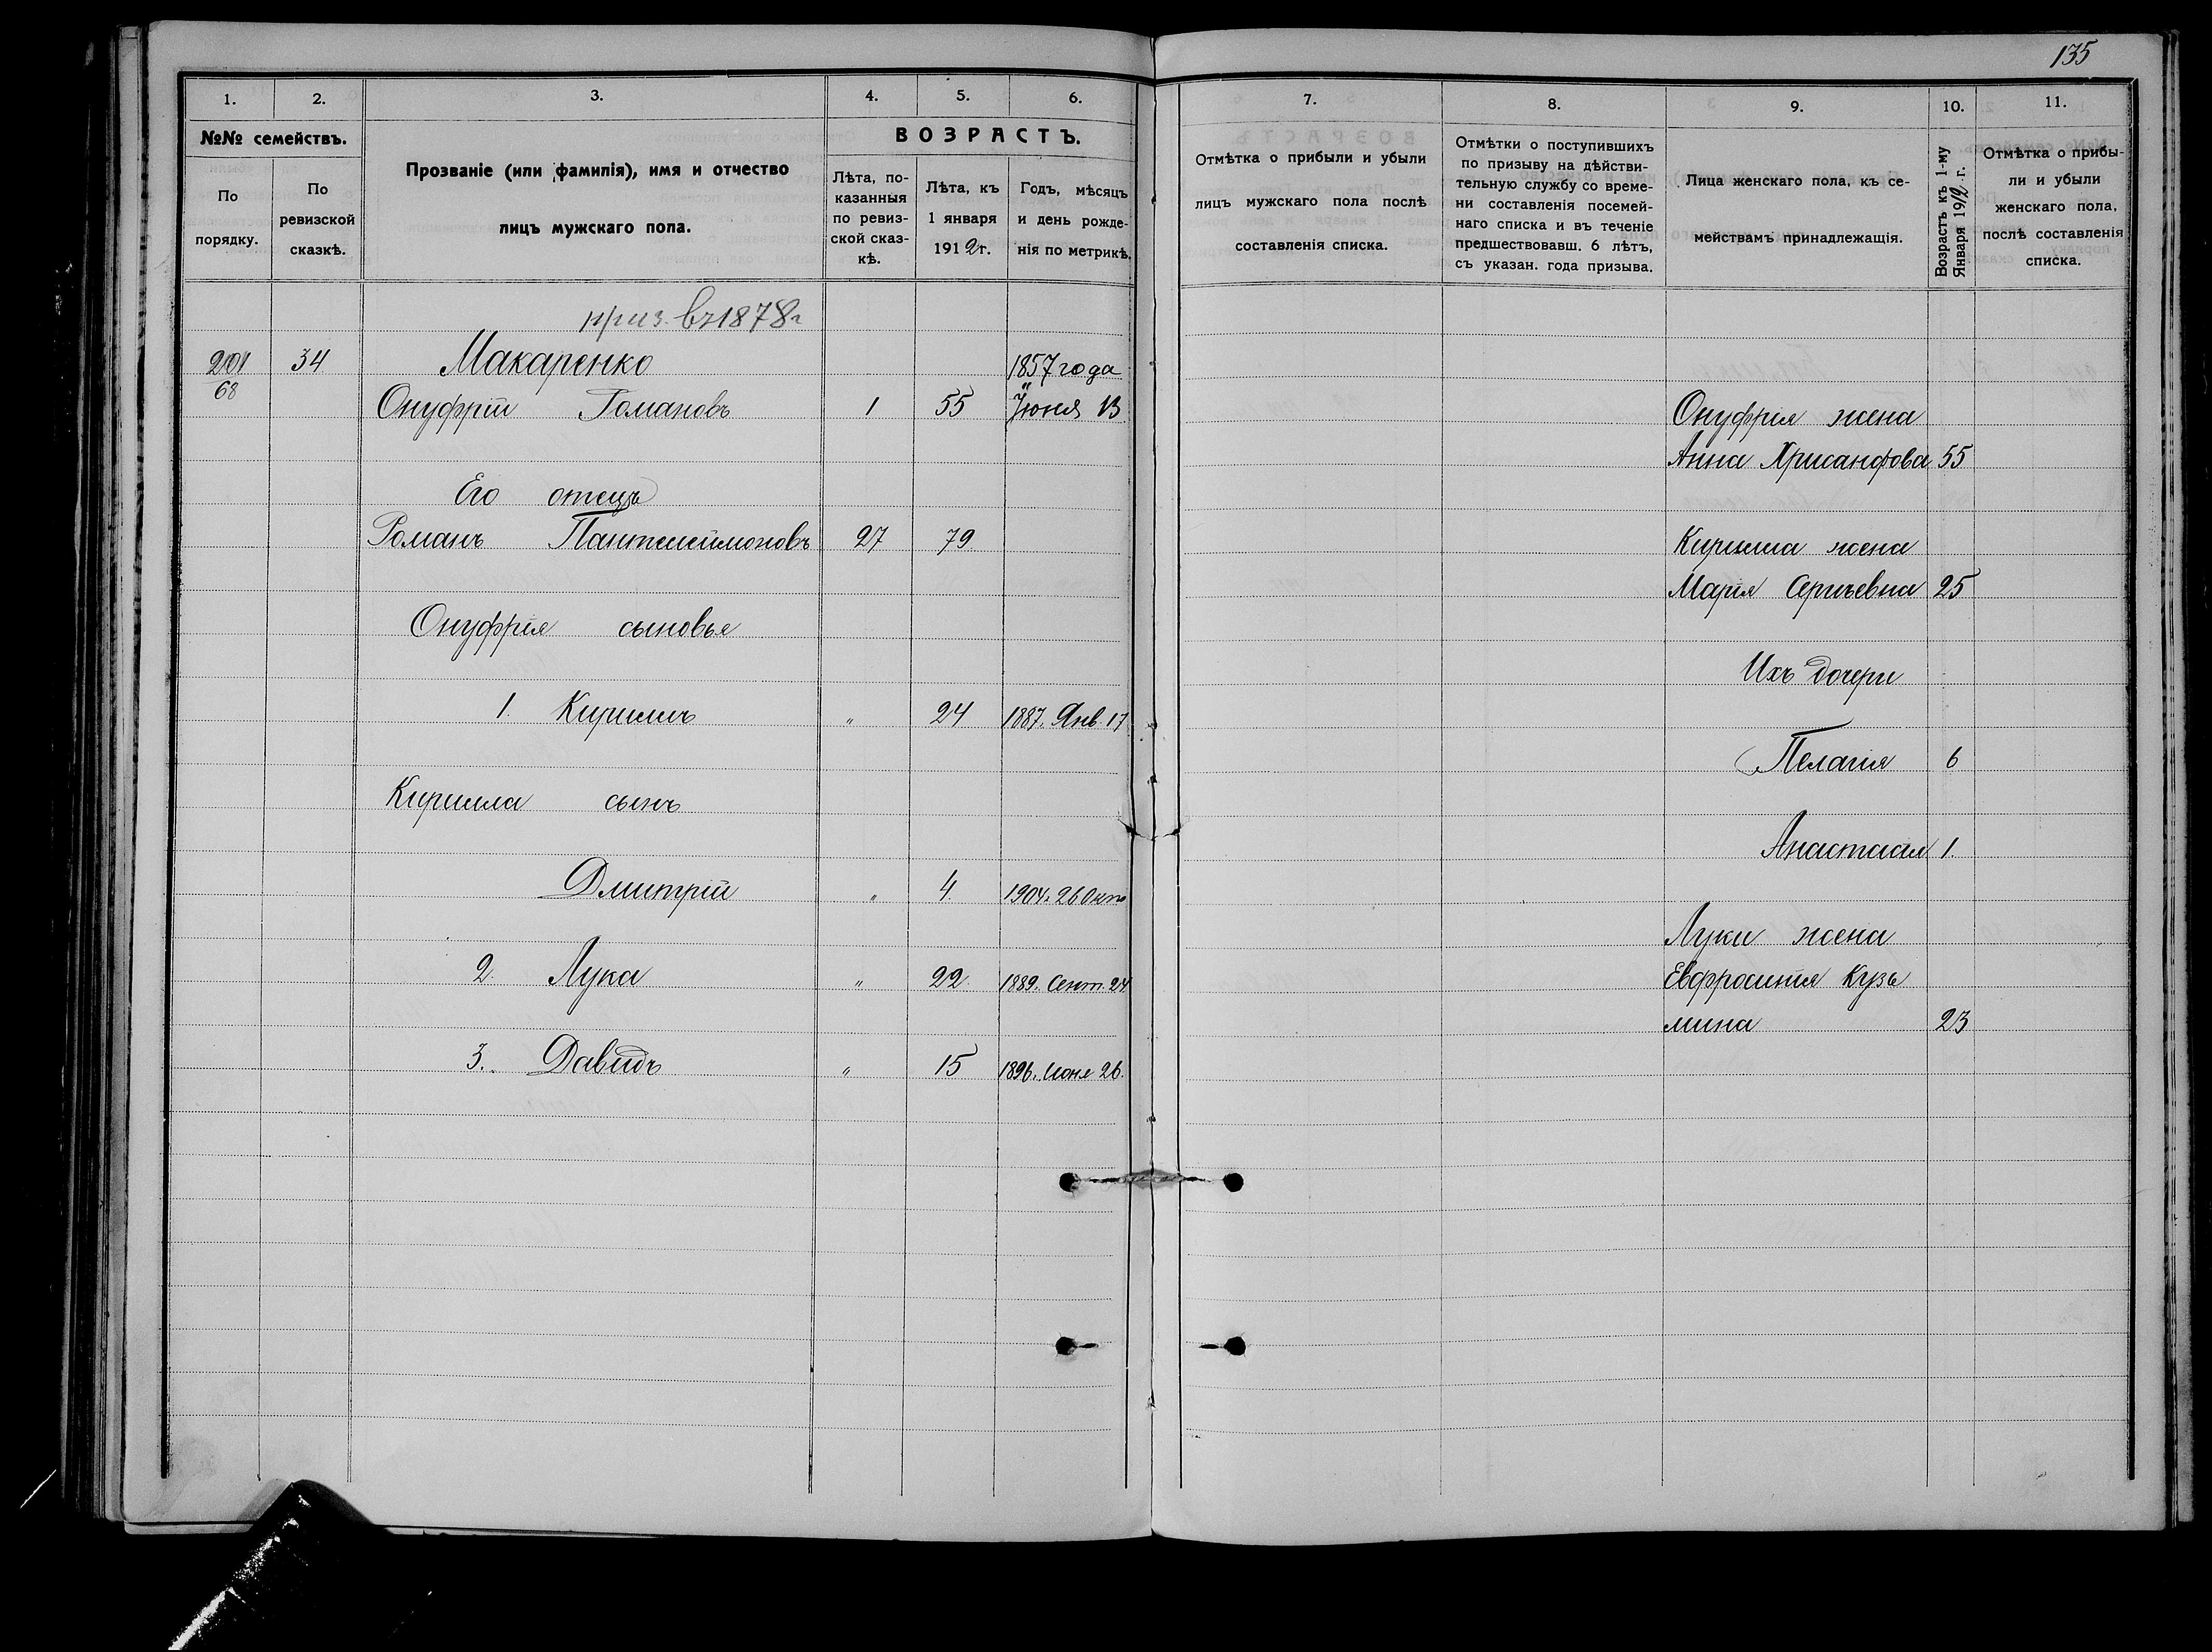 135
1.
2.
3.
4.
5.
6.
№№ семействъ.
По
порядку.
По
ревизской
сказкѣ.
Прозваніе (или фамилія), имя и отчество
лицъ мужскаго пола.
ВОЗРАСТЪ.
Лѣта, по-
казанныя
по ревиз-
ской сказ-
кѣ.
Лѣта, къ
1 января
1912 г.
Годъ, мѣсяцъ
и день рожде-
нія по метрикѣ.
приз. въ 1878 г
201 34 Макаренко 1857 года
68
Онуфрій Романовъ 1 55 Іюня 13
Его отецъ
Романъ Пантелеймоновъ 27 79
Онуфрія сыновья
1. Кириллъ " 24 1887. Янв. 17
Кирилла сынъ
Дмитрій " 4. 1904. 26 Окт
2. Лука " 22. 1889. Сент. 24
3. Давидъ " 15 1896. Июня 26.
7.
8.
9.
10.
11.
Отмѣтка о прибыли и убыли
лицъ мужскаго пола послѣ
составленія списка.
Отмѣтки о поступившихъ
по призыву на дѣйстви-
тельную службу со време-
ни составленія посемей-
наго списка и въ теченіе
предшествовавш. 6 лѣтъ,
съ указан. года призыва.
Лица женскаго пола, къ се-
мействамъ принадлежащія.
Возрастъ къ 1-му
Января 1912 г.
Отмѣтка о прибы-
ли и убыли
женскаго пола,
послѣ составленія
списка.
Онуфрія жена
Анна Хрисанфова 55
Кирилла жена
Марія Сергѣевна 25
Ихъ дочери
Пелагія 6
Анастасія 1.
Луки жена
Евфросинія Кузь
мина 23